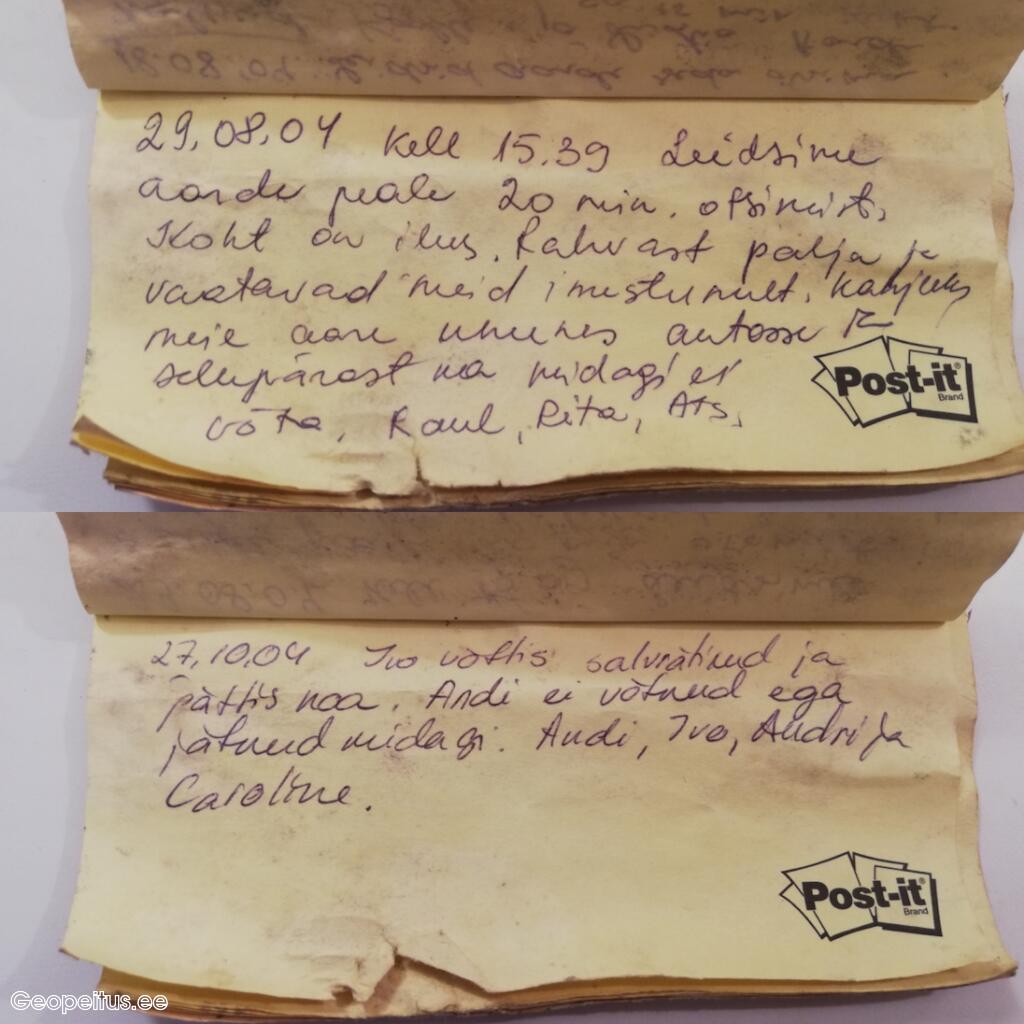 29.08.04 kell 15.39 Leidsime
aarde peale 20 min. otsimist.
Koht on ilus. Rahvast palju ja
vaatavad meid imestunult. Kahjuks
meie aare ununes autosse
sellepärast ka midagi ei
võta. Raul, Rita, Ats.
Post-it®
Brand
27.10.04 Ivo võttis salvrätinud ja
jättis noa. Andi ei võtnud ega
jätnud midagi. Andi, Ivo, Andri ja
Caroline.
Post-it®
Brand
Geopeitus.ee